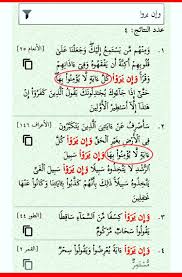 وإن يروا
عدد النتائج: ٤
١- وَمِنْهُم مَّن يَسْتَمِعُ إِلَيْكَ وَجَعَلْنَا عَلَىٰ [الأنعام ٢٥]
قُلُوبِهِمْ أَكِنَّةً أَن يَفْقَهُوهُ وَفِي ءَاذَانِهِمْ
وَقْرًا وَإِن يَرَوْا كُلَّ ءَايَةٍ لَّا يُؤْمِنُوا بِهَا
حَتَّىٰ إِذَا جَاءُوكَ يُجَادِلُونَكَ يَقُولُ الَّذِينَ كَفَرُوا إِنْ
هَٰذَا إِلَّا أَسَاطِيرُ الْأَوَّلِينَ
٢- سَأَصْرِفُ عَنْ ءَايَاتِيَ الَّذِينَ يَتَكَبَّرُونَ [الأعراف ١٤٦]
فِي الْأَرْضِ بِغَيْرِ الْحَقِّ وَإِن يَرَوْا
كُلَّ ءَايَةٍ لَّا يُؤْمِنُوا بِهَا وَإِن يَرَوْا سَبِيلَ
الرُّشْدِ لَا يَتَّخِذُوهُ سَبِيلًا وَإِن يَرَوْا سَبِيلَ الْغَيِّ
يَتَّخِذُوهُ سَبِيلًا ذَٰلِكَ بِأَنَّهُمْ كَذَّبُوا بِـَٔايَاتِنَا وَكَانُوا عَنْهَا
غَافِلِينَ
٣- وَإِن يَرَوْا كِسْفًا مِّنَ السَّمَاءِ سَاقِطًا [الطور ٤٤]
يَقُولُوا سَحَابٌ مَّرْكُومٌ
٤- وَإِن يَرَوْا ءَايَةً يُعْرِضُوا وَيَقُولُوا سِحْرٌ [القمر ٢]
مُّسْتَمِرٌّ